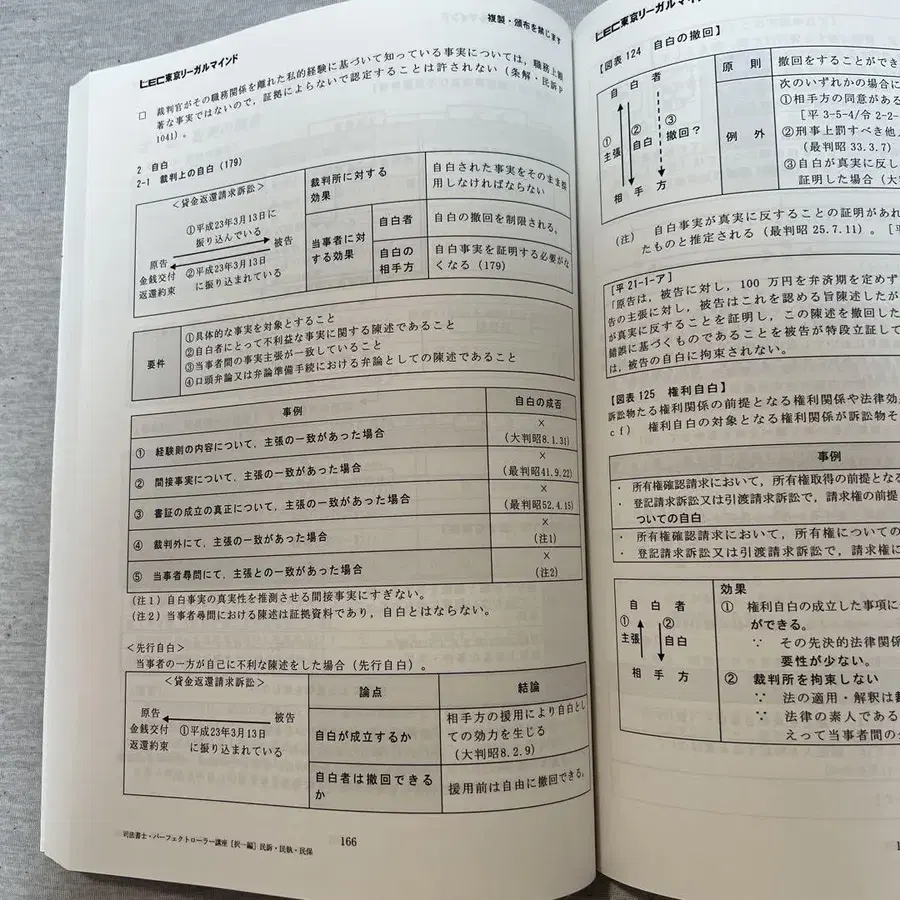 LEC東京リーガルマインド
複製・頒布を禁じます
□ 裁判官がその職務関係を離れた私的経験に基づいて知っている事実については，職務上顕
著な事実ではないので，証拠によらないで認定することは許されない（条解・民訴P
1041）。
2 自白
2-1 裁判上の自白（179）
＜貸金返還請求訴訟＞
①平成23年3月13日に
振り込んでいる
原告
被告
金銭交付
返還約束
②平成23年3月13日
に振り込まれている
裁判所に対する
効果
自白された事実をそのまま採
用しなければならない
当事者に対
する効果
自白者
自白の撤回を制限される。
自白の
相手方
自白事実を証明する必要がな
くなる（179）
要件
①具体的な事実を対象とすること
②自白者にとって不利益な事実に関する陳述であること
③当事者間の事実主張が一致していること
④口頭弁論又は弁論準備手続における弁論としての陳述であること
事例
自白の成否
① 経験則の内容について，主張の一致があった場合
×
（大判昭8.1.31）
② 間接事実について，主張の一致があった場合
×
（最判昭41.9.22）
③ 書証の成立の真正について，主張の一致があった場合
×
（最判昭52.4.15）
④ 裁判外にて，主張の一致があった場合
×
（注1）
⑤ 当事者尋問にて，主張との一致があった場合
×
（注2）
（注1）自白事実の真実性を推測させる間接事実にすぎない。
（注2）当事者尋問における陳述は証拠資料であり，自白とはならない。
＜先行自白＞
当事者の一方が自己に不利な陳述をした場合（先行自白）。
＜貸金返還請求訴訟＞
原告
被告
金銭交付
返還約束
①平成23年3月13日
に振り込まれている
論点
結論
自白が成立するか
相手方の援用により自白とし
ての効力を生じる
（大判昭8.2.9）
自白者は撤回できる
か
援用前は自由に撤回できる。
司法書士・パーフェクトローラー講座［択一編］民訴・民執・民保
166
LEC東京リーガルマインド
【図表124 自白の撤回】
自 白 者
①
主張
②
自白
③
撤回？
相 手 方
原 則
撤回をすることができ
例 外
次のいずれかの場合に
①相手方の同意がある
［平3-5-4/令2-2-
②刑事上罰すべき他人
（最判昭33.3.7）
③自白が真実に反し
証明した場合（大
（注） 自白事実が真実に反することの証明があれ
たものと推定される（最判昭25.7.11）。［平
［平21-1-ア］
「原告は，被告に対し，100万円を弁済期を定めず
告の主張に対し，被告はこれを認める旨陳述したが
が真実に反することを証明し，この陳述を撤回した
錯誤に基づくものであることを被告が特段立証して
は，被告の自白に拘束されない。
【図表125 権利自白】
訴訟物たる権利関係の前提となる権利関係や法律効
cf） 権利自白の対象となる権利関係が訴訟物そ
事例
・ 所有権確認請求において，所有権取得の前提となる
・ 登記請求訴訟又は引渡請求訴訟で，請求権の前提
ついての自白
・ 所有権確認請求において，所有権についての
・ 登記請求訴訟又は引渡請求訴訟で，請求権に
自 白 者
①
主張
②
自白
相 手 方
効果
① 権利自白の成立した事項に
ができる。
∵ その先決的法律関係
要性が少ない。
② 裁判所を拘束しない
∵ 法の適用・解釈は裁
∵ 法律の素人である
えって当事者間の